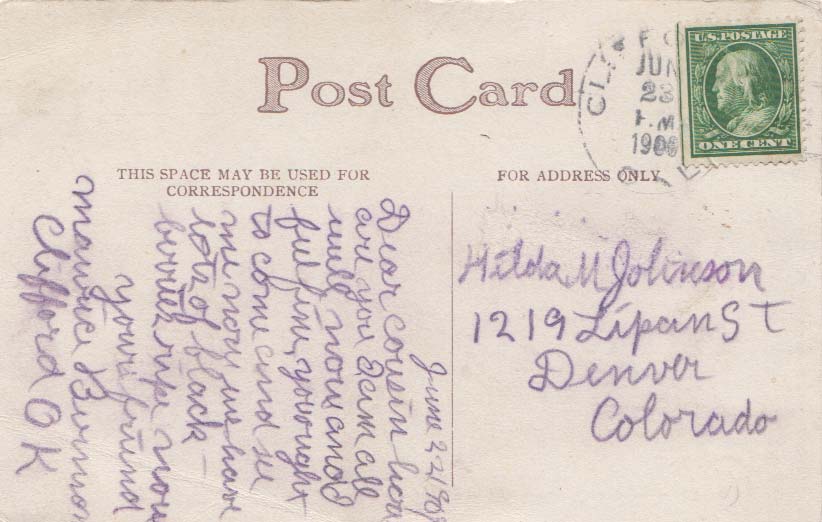 Post Card
THIS SPACE MAY BE USED FOR
CORRESPONDENCE
FOR ADDRESS ONLY
JUN
23
P.M.
U.S. POSTAGE
ONE CENT
June 22 190
Dear cousin how
are you I am all
well now and
feel fine, you ought
to come and see
me now we have
lots of black-
berries ripe now
your friend
Maurice
Clifford OK
Hilda M Johnson
1219 Lipan St
Denver
Colorado